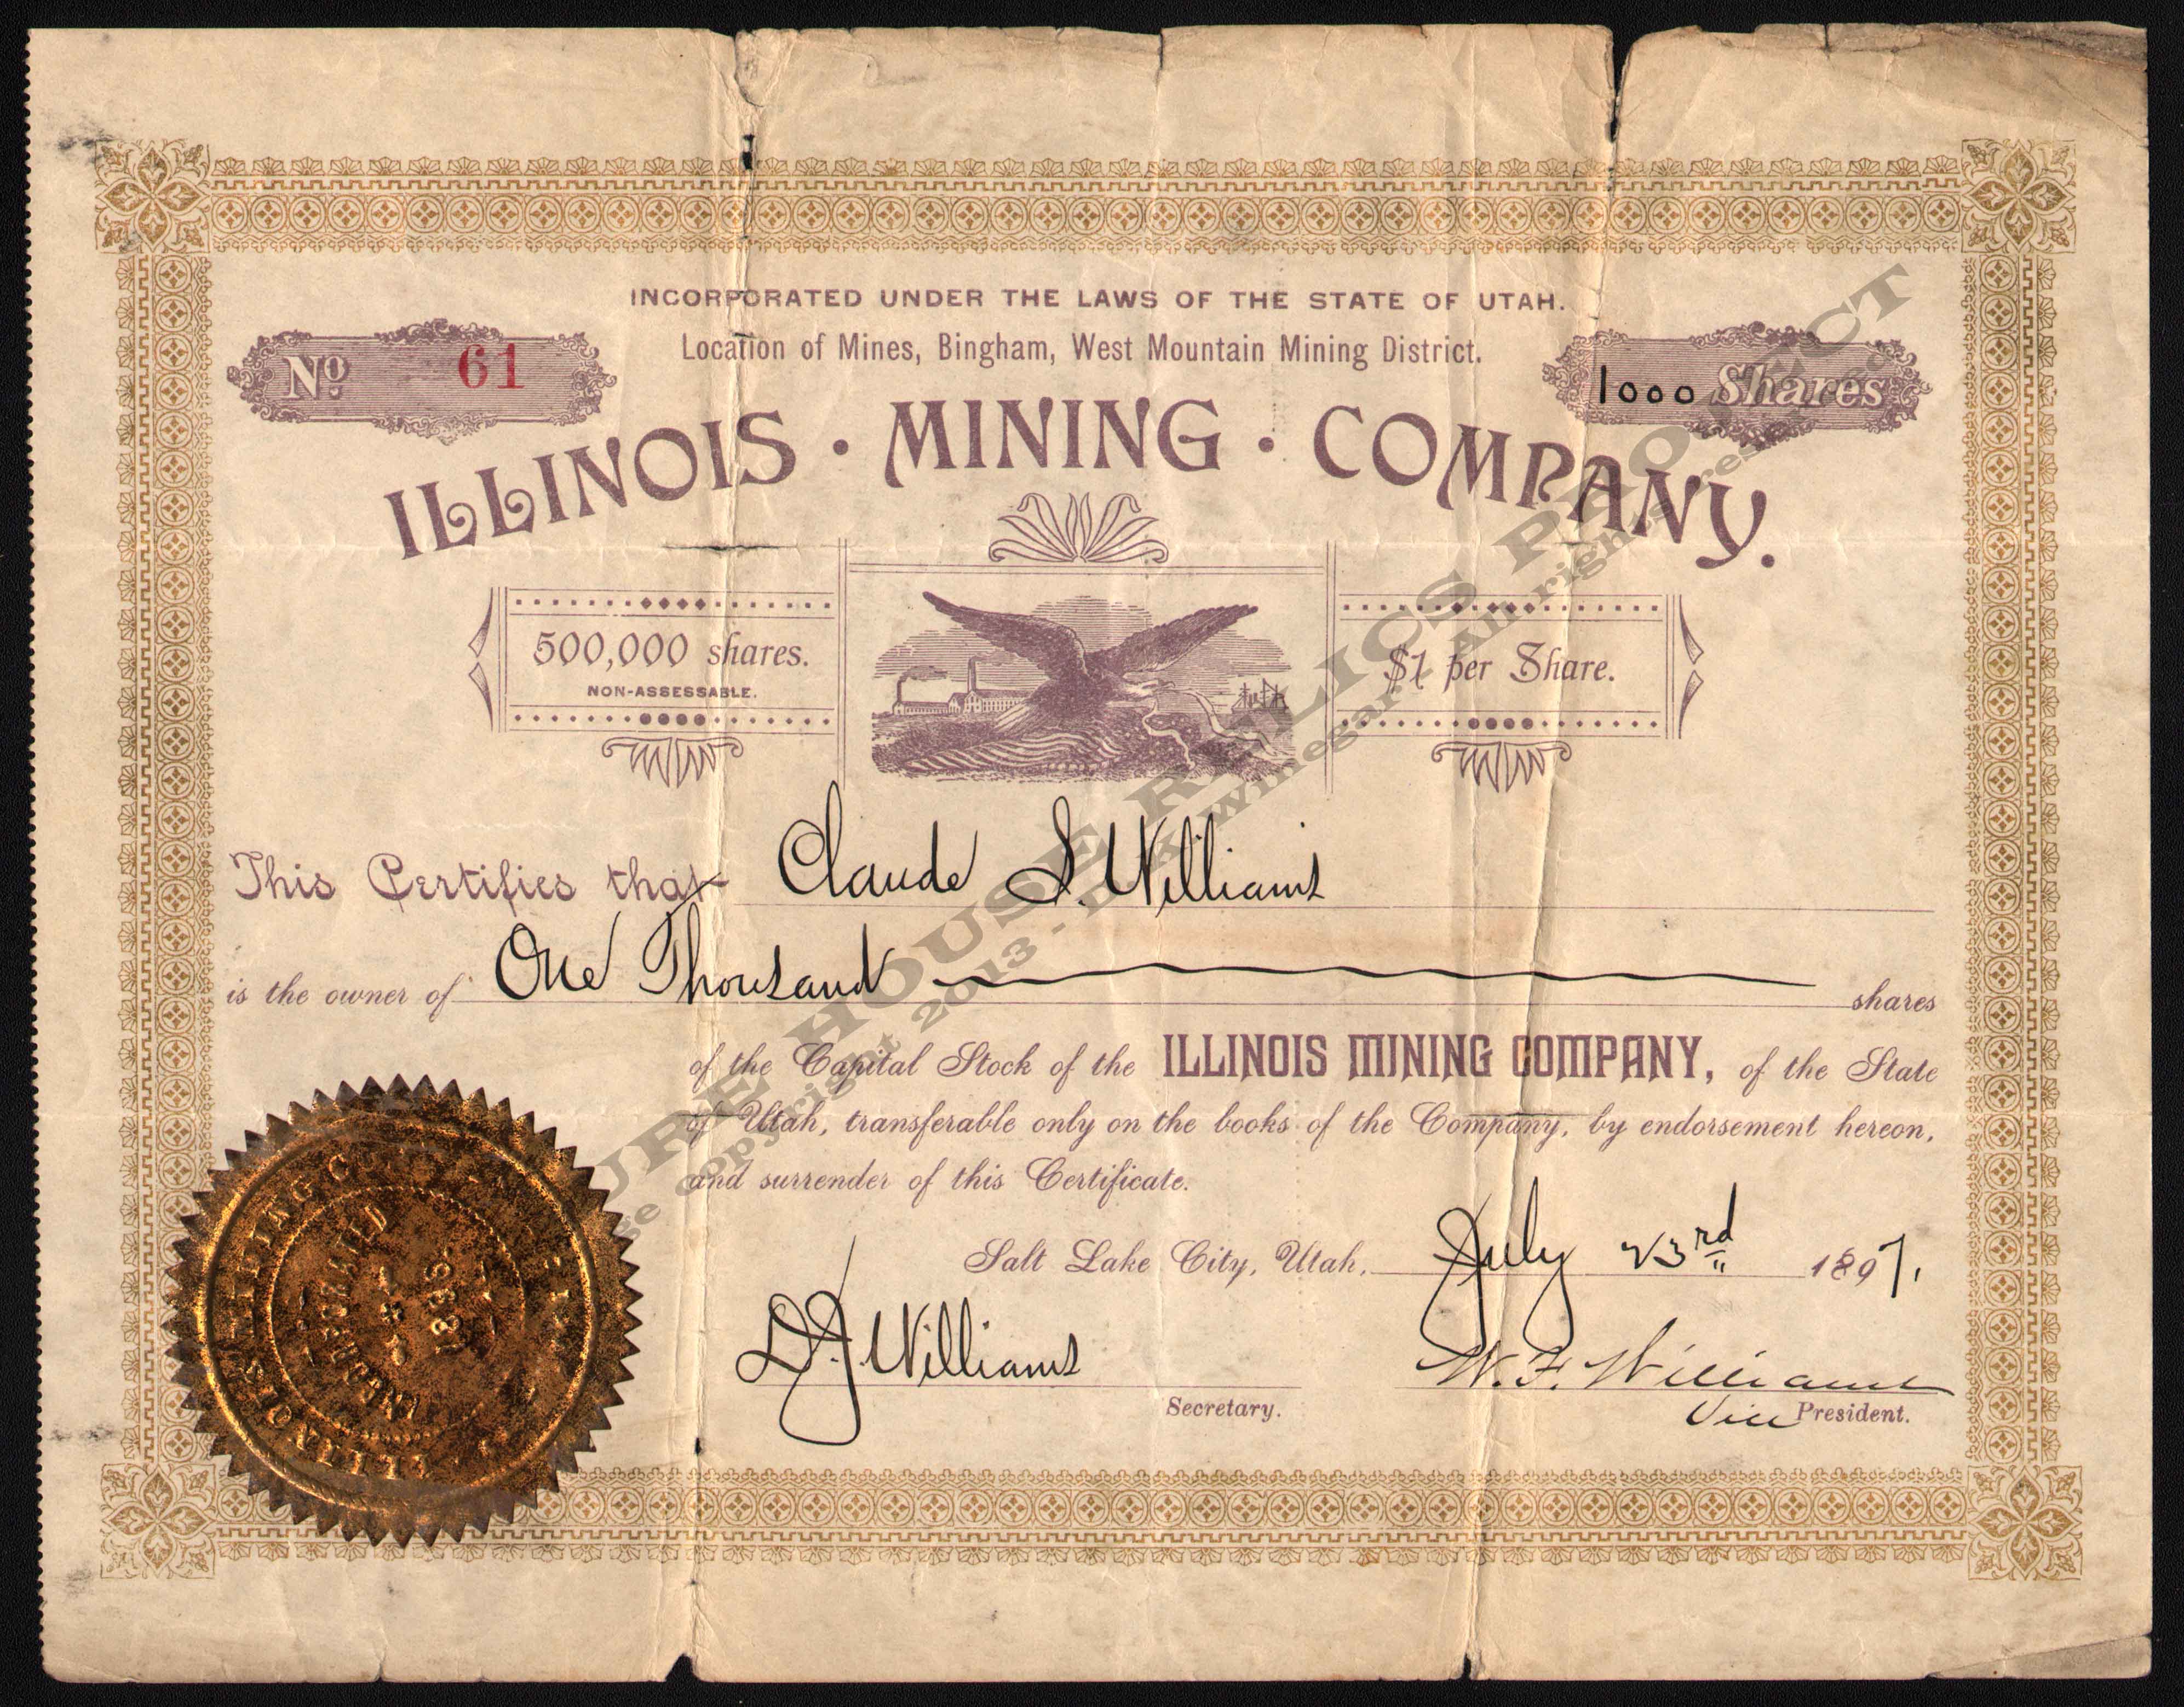 INCORPORATED UNDER THE LAWS OF THE STATE OF UTAH.
Location of Mines, Bingham, West Mountain Mining District.
No. 61
1000 Shares
ILLINOIS · MINING · COMPANY.
500,000 shares.
NON-ASSESSABLE.
$1 per Share.
This Certifies that Claude S. Williams
is the owner of One Thousand shares
of the Capital Stock of the ILLINOIS MINING COMPANY, of the State
of Utah, transferable only on the books of the Company, by endorsement hereon,
and surrender of this Certificate.
Salt Lake City, Utah, July 23rd 1897.
D.J. Williams
Secretary.
W. F. Williams
Vice President.
ILLINOIS MINING
INCORPORATED
1896
HOUSE RELICS PROJECT
copyright 2013 - D K Winegar - All rights